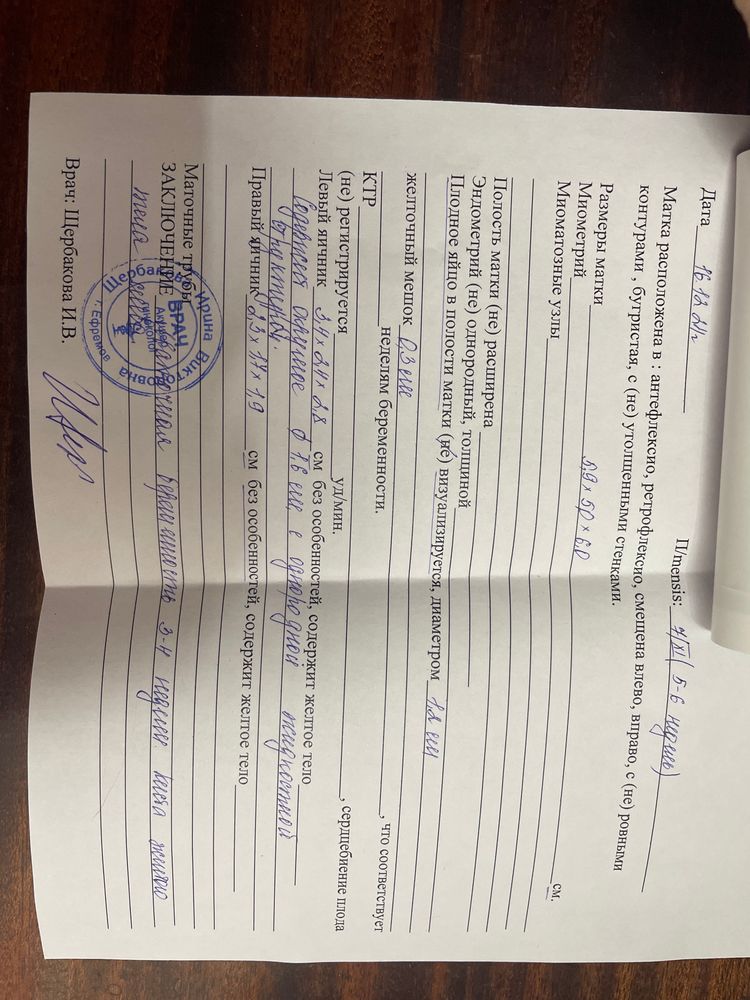 Дата 16.12.24г П/mensis: 7/XI (5-6 недель)
Матка расположена в : антефлексио, ретрофлексио, смещена влево, вправо, с (не) ровными
контурами , бугристая, с (не) утолщенными стенками.
Размеры матки 5,9 х 5,0 х 6,0
Миометрий
Миоматозные узлы см.
Полость матки (не) расширена
Эндометрий (не) однородный, толщиной
Плодное яйцо в полости матки (не) визуализируется, диаметром 1,2 см
желточный мешок 0,3 см
КТР , что соответствует
неделям беременности.
(не) регистрируется уд/мин. , сердцебиение плода
Левый яичник 3,4 х 2,1 х 2,8 см без особенностей, содержит желтое тело
с однородной жидкостной
структурой.
Правый яичник 2,3 х 1,7 х 1,9 см без особенностей, содержит желтое тело
Маточные трубы
ЗАКЛЮЧЕНИЕ Маточная беременность 3-4 недели. Киста желтого
тела слева
Щербакова Ирина Викторовна
ВРАЧ
Акушер
гинеколог
г. Ефремов
Врач: Щербакова И.В.